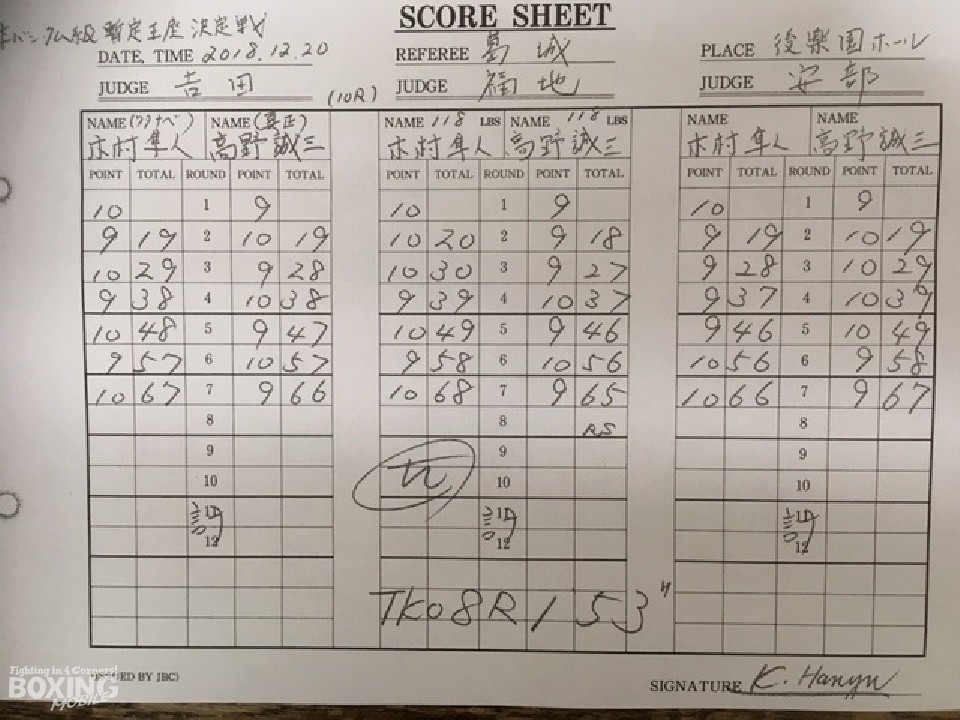 SCORE SHEET
バンタム級 暫定王座 決定戦
DATE, TIME 2018.12.20 REFEREE 葛城 PLACE 後楽園ホール
JUDGE 吉田 (10R) JUDGE 福地 JUDGE 安部
NAME (ワタナベ) NAME (真正) NAME 118 LBS NAME 118 LBS NAME NAME
木村 隼人 高野 誠三 木村 隼人 高野 誠三 木村 隼人 高野 誠三
POINT TOTAL ROUND POINT TOTAL POINT TOTAL ROUND POINT TOTAL POINT TOTAL ROUND POINT TOTAL
10 1 9 10 1 9 10 1 9
9 19 2 10 19 10 20 2 9 18 9 19 2 10 19
10 29 3 9 28 10 30 3 9 27 9 28 3 10 29
9 38 4 10 38 9 39 4 10 37 9 37 4 10 39
10 48 5 9 47 10 49 5 9 46 9 46 5 10 49
9 57 6 10 57 9 58 6 10 56 10 56 6 9 58
10 67 7 9 66 10 68 7 9 65 10 66 7 9 67
8 8 RS 8
9 9 9
10 10 10
12 12 12
TKO 8R 1 53"
(ISSUED BY JBC) SIGNATURE K. Hanyu
Fighting in 4 Corners!
BOXING
MOBILE